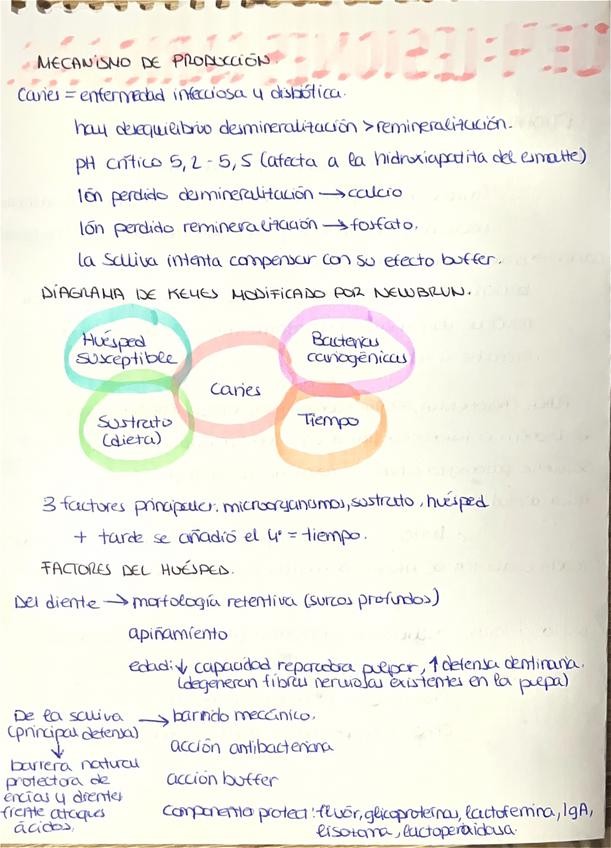 MECANISMO DE PRODUCCIÓN.
Caries = enfermedad infecciosa y disbiótica.
hay desequilibrio desmineralización > remineralización.
pH crítico 5,2 - 5,5 (afecta a la hidroxiapatita del esmalte)
Ión perdido desmineralización → calcio
Ión perdido remineralización → fosfato.
la saliva intenta compensar con su efecto buffer.
DIAGRAMA DE KEYES MODIFICADO POR NEWBRUN.
Huésped
susceptible
Bacterias
cariogénicas
Caries
Sustrato
(dieta)
Tiempo
3 factores principales: microorganismos, sustrato, huésped
+ tarde se añadió el 4º = tiempo.
FACTORES DEL HUÉSPED.
Del diente → morfología retentiva (surcos profundos)
apiñamiento
edad: ↓ capacidad reparadora pulpar, ↑ defensa dentinaria.
(degeneran fibras nerviosas existentes en la pulpa)
De la saliva → barrido mecánico.
(principal defensa)
↓
acción antibacteriana
barrera natural
protectora de
encías y dientes
frente ataques
ácidos.
acción buffer
componentes protect: flúor, glicoproteínas, lactoferrina, IgA,
lisozima, lactoperoxidasa.